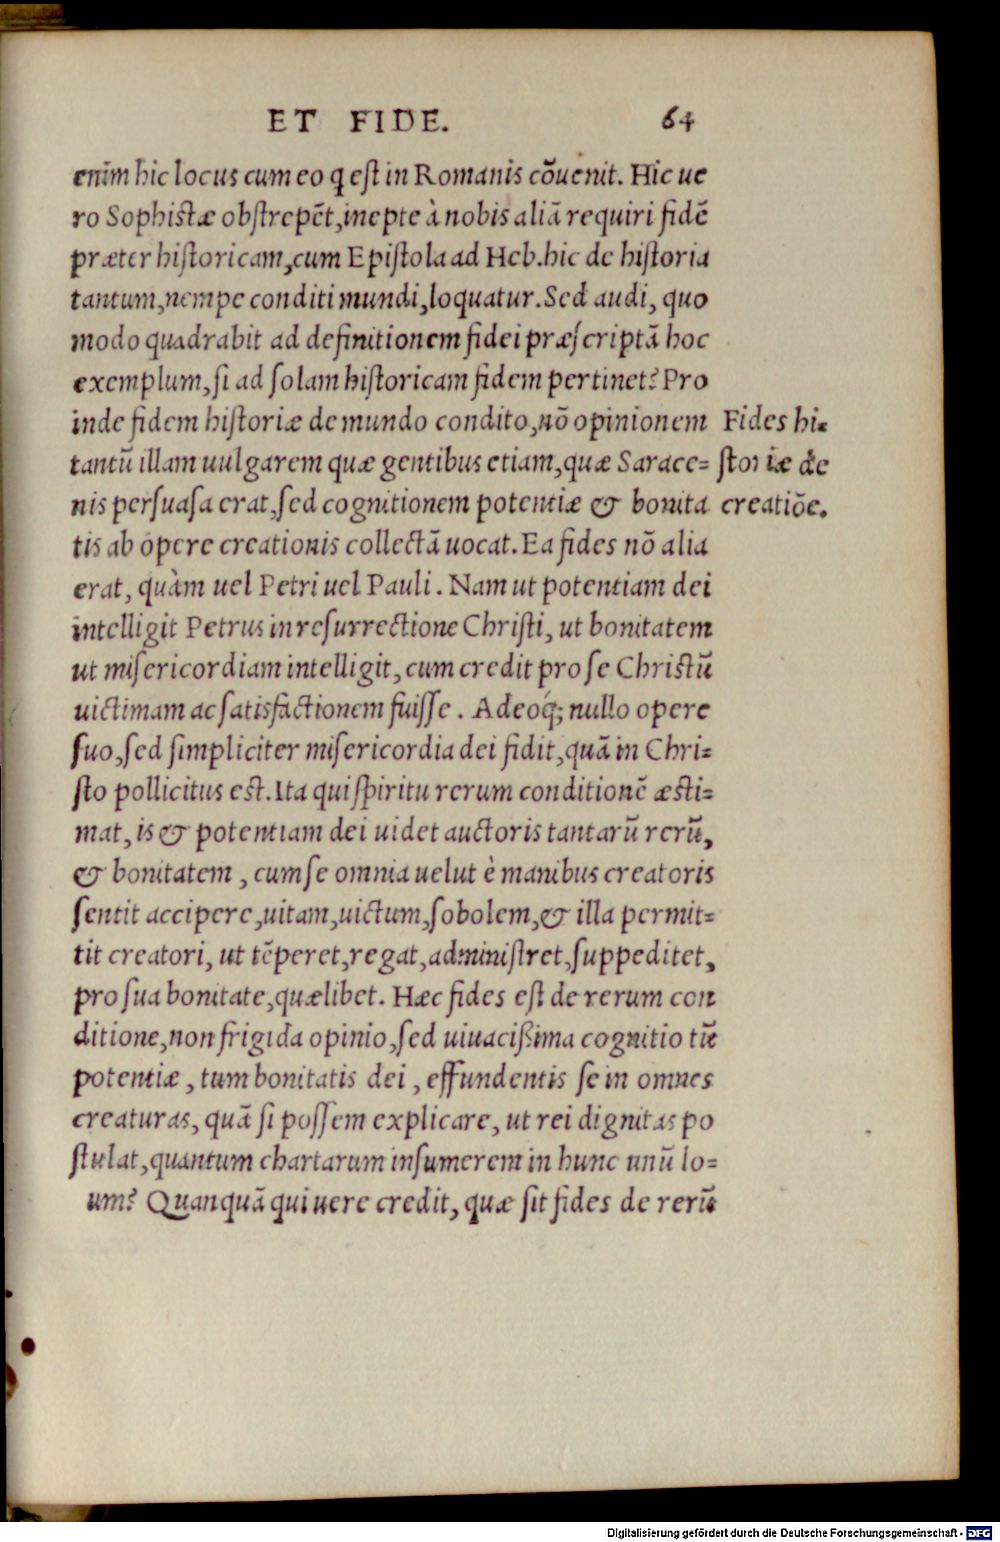 ET FIDE. 64
enim hic locus cum eo q est in Romanis cõuenit. Hic ue
ro Sophistæ obstrepẽt, inepte à nobis aliã requiri fidẽ
præter historicam, cum Epistola ad Heb. hic de historia
tantum, nempe conditi mundi, loquatur. Sed audi, quo
modo quadrabit ad definitionem fidei præscriptã hoc
exemplum, si ad solam historicam fidem pertinet? Pro
inde fidem historiæ de mundo condito, nõ opinionem
Fides hi-
tantũ illam uulgarem quæ gentibus etiam, quæ Sarace=
storiæ de
nis persuasa erat, sed cognitionem potentiæ & bonita
creatiõe.
tis ab opere creationis collectã uocat. Ea fides nõ alia
erat, quàm uel Petri uel Pauli. Nam ut potentiam dei
intelligit Petrus in resurrectione Christi, ut bonitatem
ut misericordiam intelligit, cum credit pro se Christũ
uictimam ac satisfactionem fuisse. Adeoq́; nullo opere
suo, sed simpliciter misericordia dei fidit, quã in Chri=
sto pollicitus est. Ita qui spiritu rerum conditionẽ æsti=
mat, is & potentiam dei uidet auctoris tantarũ rerũ,
& bonitatem, cum se omnia uelut è manibus creatoris
sentit accipere, uitam, uictum, sobolem, & illa permit=
tit creatori, ut tẽperet, regat, administret, suppeditet,
pro sua bonitate, quælibet. Hæc fides est de rerum con
ditione, non frigida opinio, sed uiuacißima cognitio tũ
potentiæ, tum bonitatis dei, effundentis se in omnes
creaturas, quã si possem explicare, ut rei dignitas po
stulat, quantum chartarum insumerem in hunc unũ lo=
um? Quanquã qui uere credit, quæ sit fides de rerũ
Digitalisierung gefördert durch die Deutsche Forschungsgemeinschaft - DFG